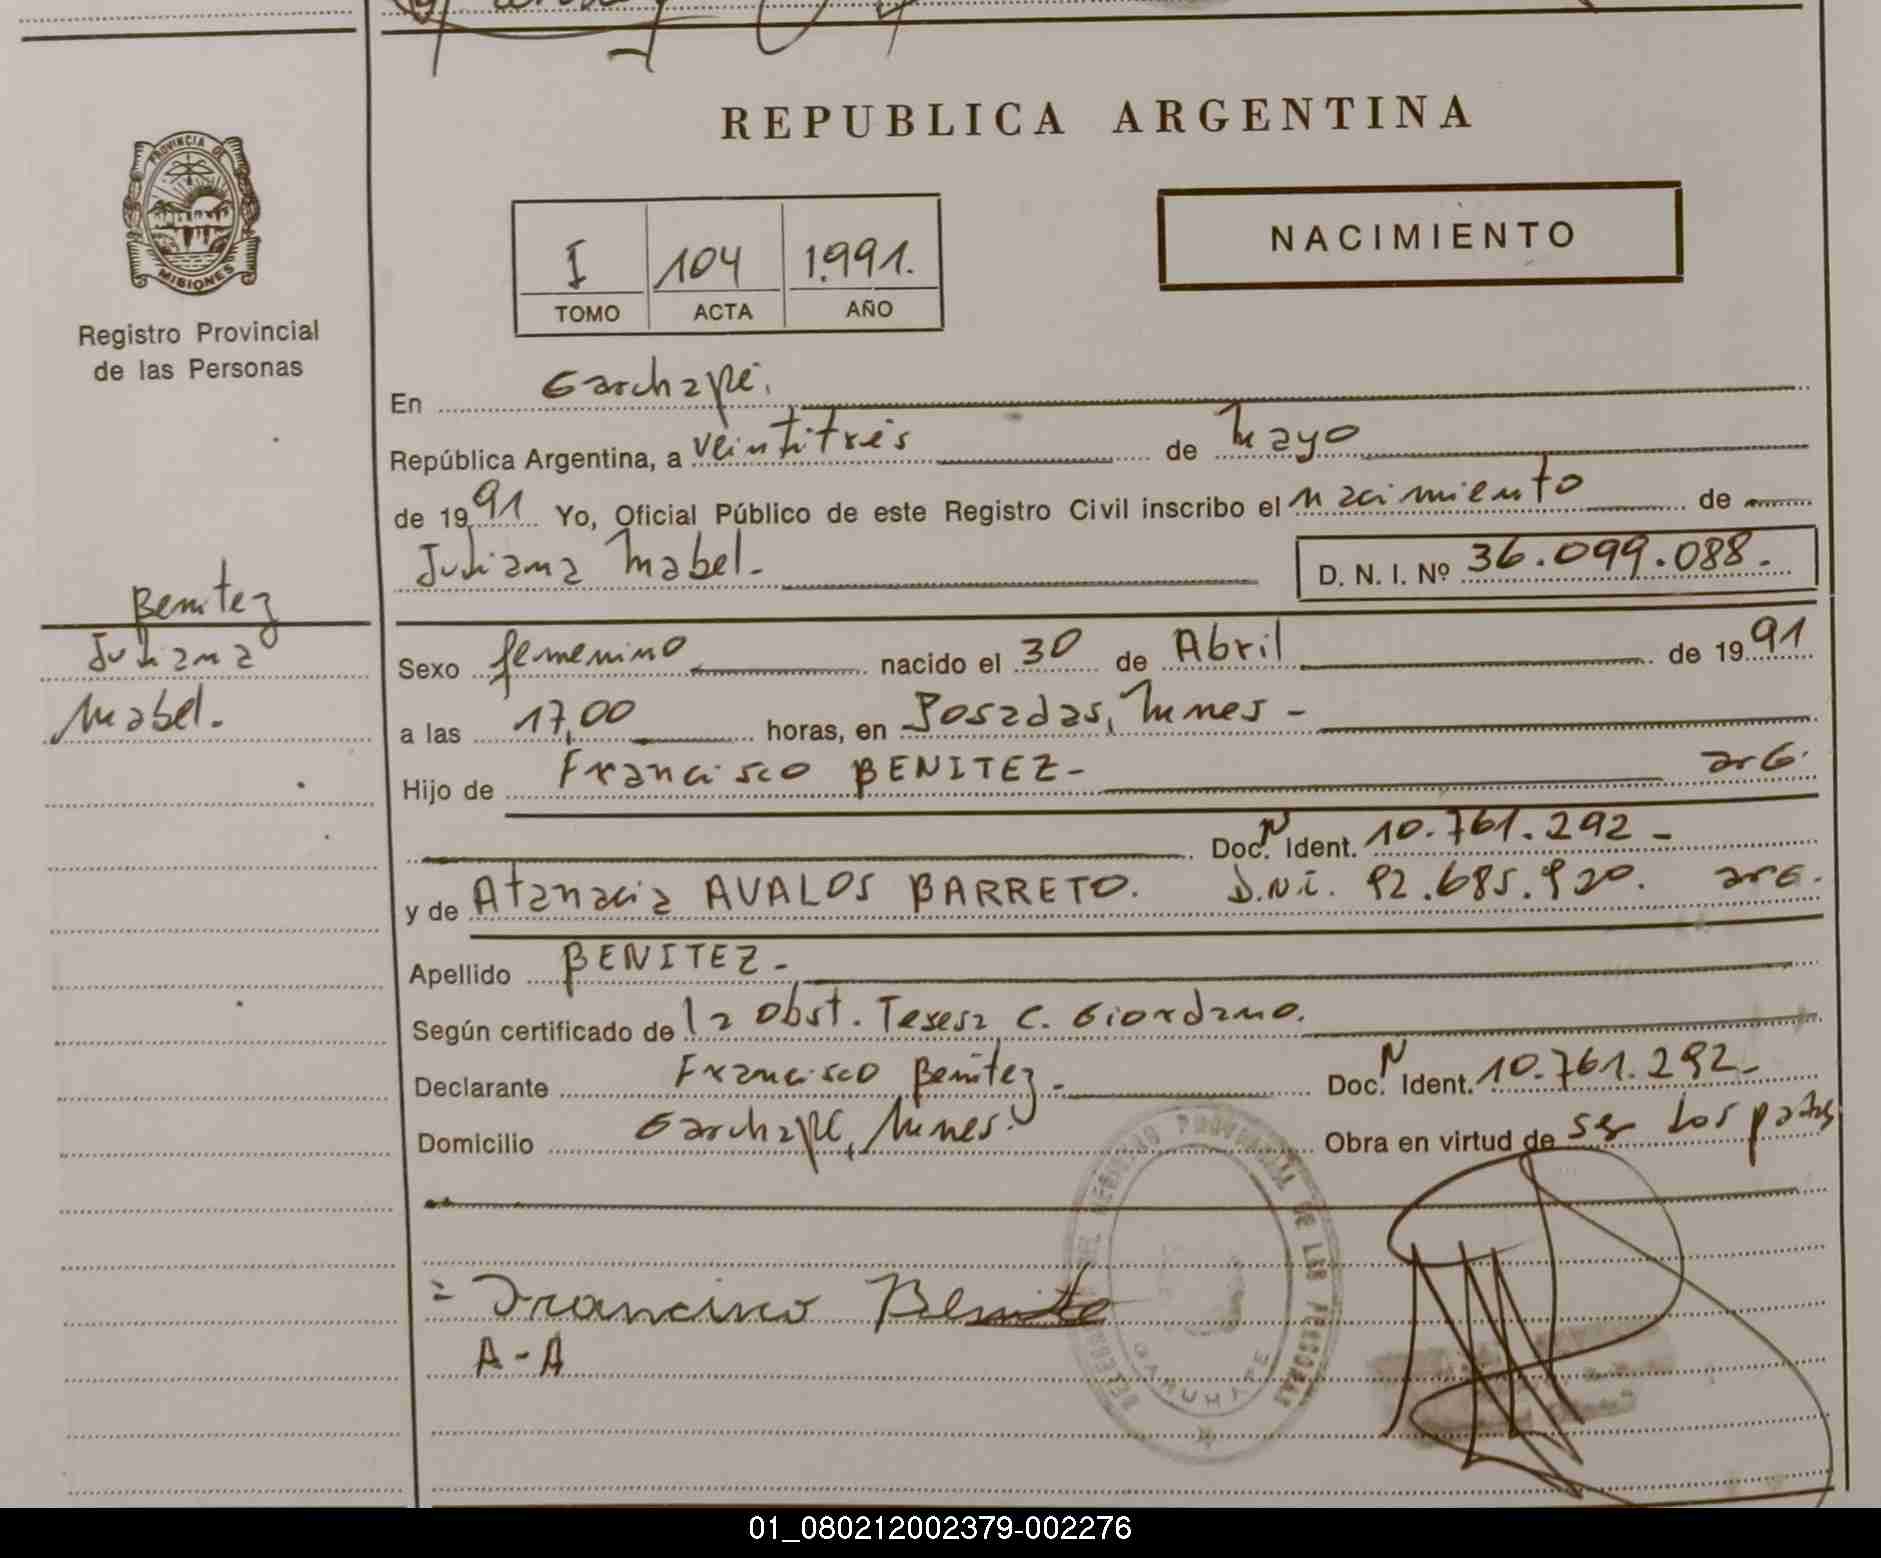 REPUBLICA ARGENTINA
PROVINCIA DE
MISIONES
Registro Provincial
de las Personas
NACIMIENTO
I 104 1.991.
TOMO ACTA AÑO
En Garuhapé.
República Argentina, a veintitrés de Mayo
de 1991 Yo, Oficial Público de este Registro Civil inscribo el nacimiento de
Juliana Mabel.-
D. N. I. Nº 36.099.088.-
Benitez
Juliana
Mabel.-
Sexo femenino nacido el 30 de Abril de 1991
a las 17,00 horas, en Posadas, Mnes -
Hijo de Francisco BENITEZ- arg.
Doc. N Ident. 10.761.292 -
y de Atanacia AVALOS BARRETO. D.N.i. 92.685.920. arg.
Apellido BENITEZ -
Según certificado de la Obst. Teresa C. Giordano.
Declarante Francisco Benitez - Doc. N Ident. 10.761.292 -
Domicilio Garuhapé, Mnes. Obra en virtud de ser los padres
= Francisco Benite
A - A
REGISTRO PROVINCIAL DE LAS PERSONAS
GARUHAPE
01_080212002379-002276